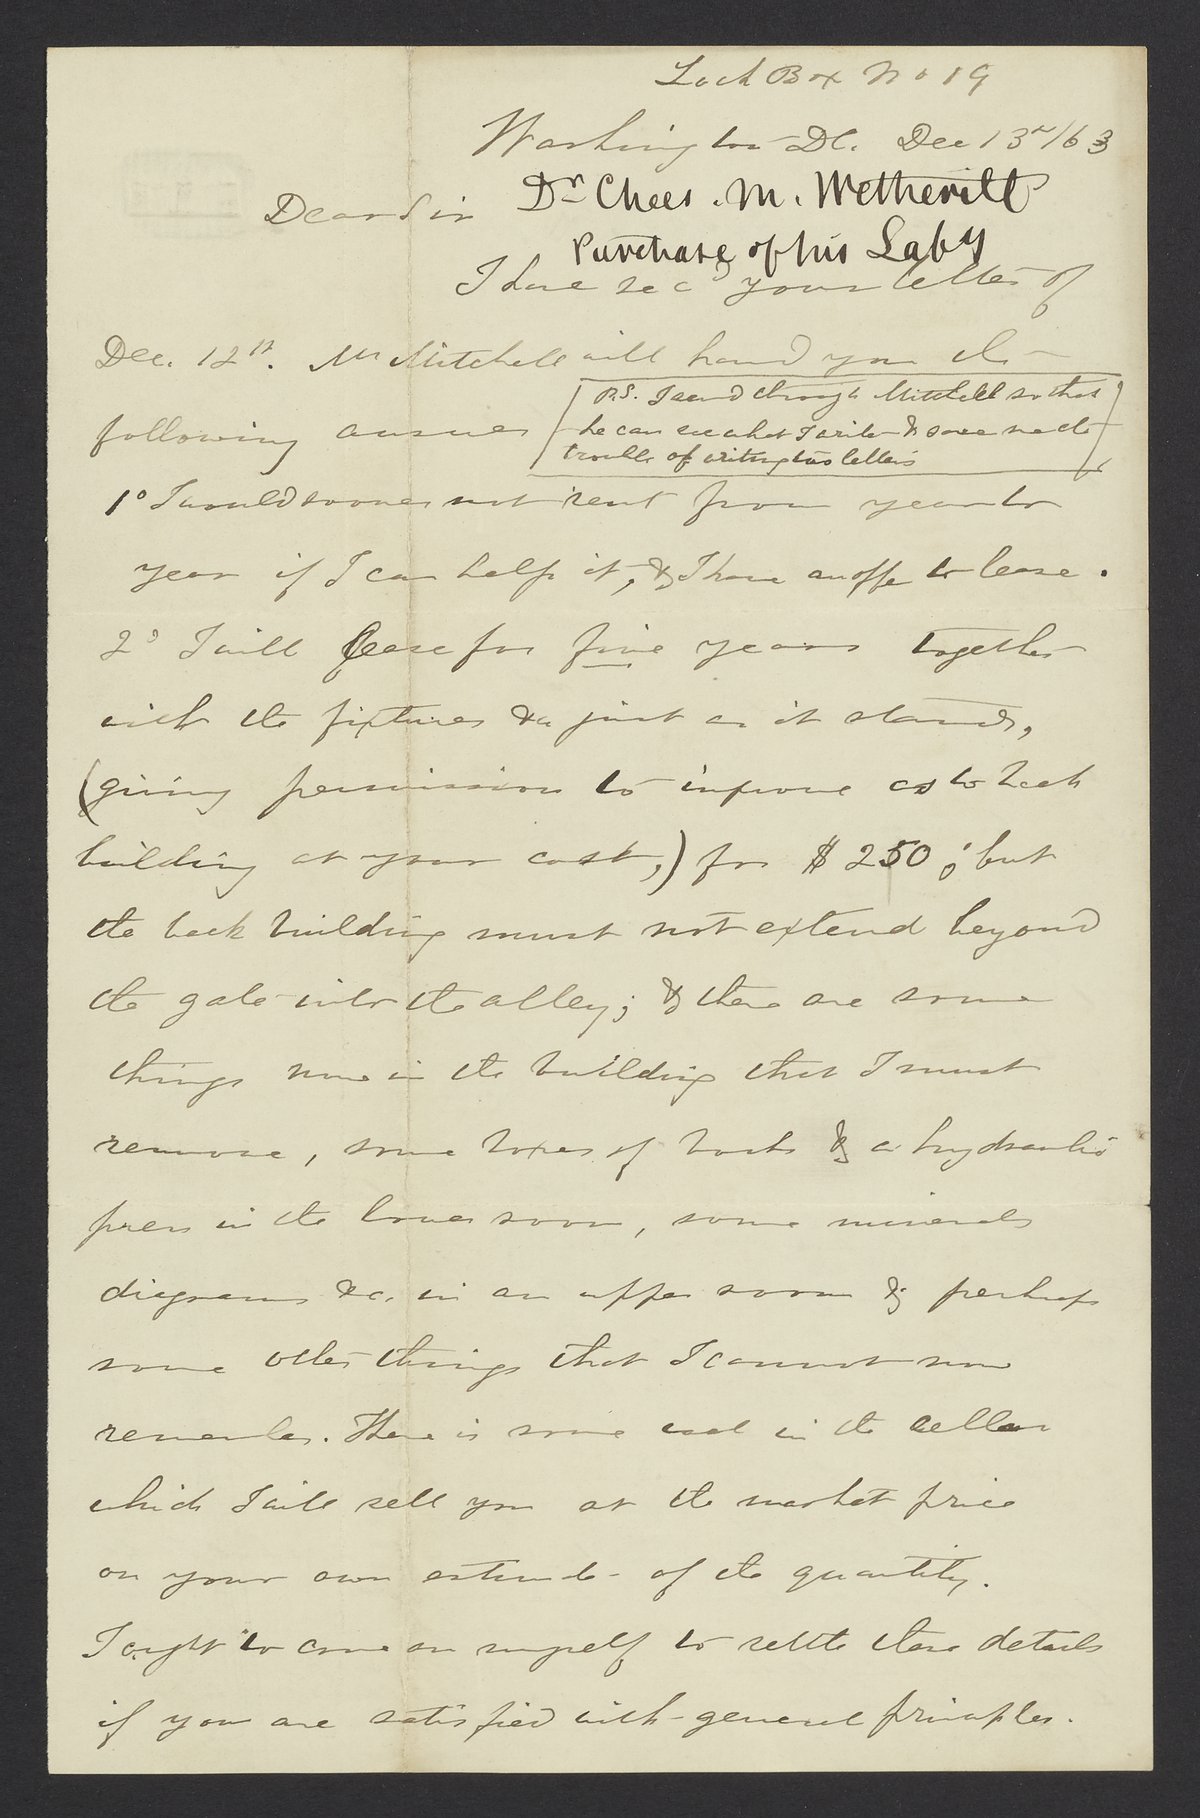 Lock Box No 19
Washington DC. Dec 13th/63
Dr Chas. M. Wetherill
Dear Sir
Purchase of his Laby
I have recd your letter of
Dec. 12th. Mr Mitchell will hand you the
P.S. I send through Mitchell so that
he can see what I write & save me the
trouble of writing two letters
following answer
1o I would sooner not rent from year to
year if I can help it, & I have an offer to lease.
2o I will lease for five years together
with the fixtures &c just as it stands,
(giving permission to improve as to back
building at your cost,) for $250; but
the back building must not extend beyond
the gate into the alley; & there are some
things now in the building that I must
remove, some boxes of books & a hydraulic
press in the lower room, some minerals
diagrams &c. in an upper room & perhaps
some other things that I cannot now
remember. There is some coal in the cellar
which I will sell you at the market price
on your own estimate of the quantity.
I ought to come on myself to settle these details
if you are satisfied with general principles.